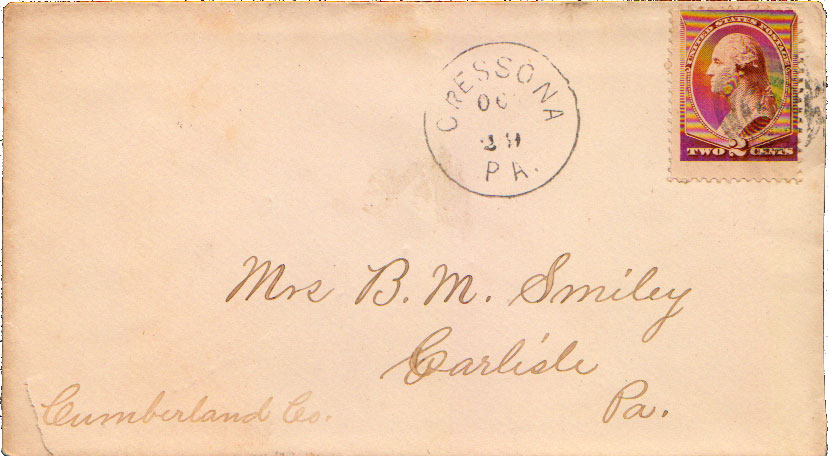 UNITED STATES POSTAGE
TWO 2 CENTS
CRESSONA
OC
PA.
Mrs B. M. Smiley
Carlisle
Pa.
Cumberland Co.